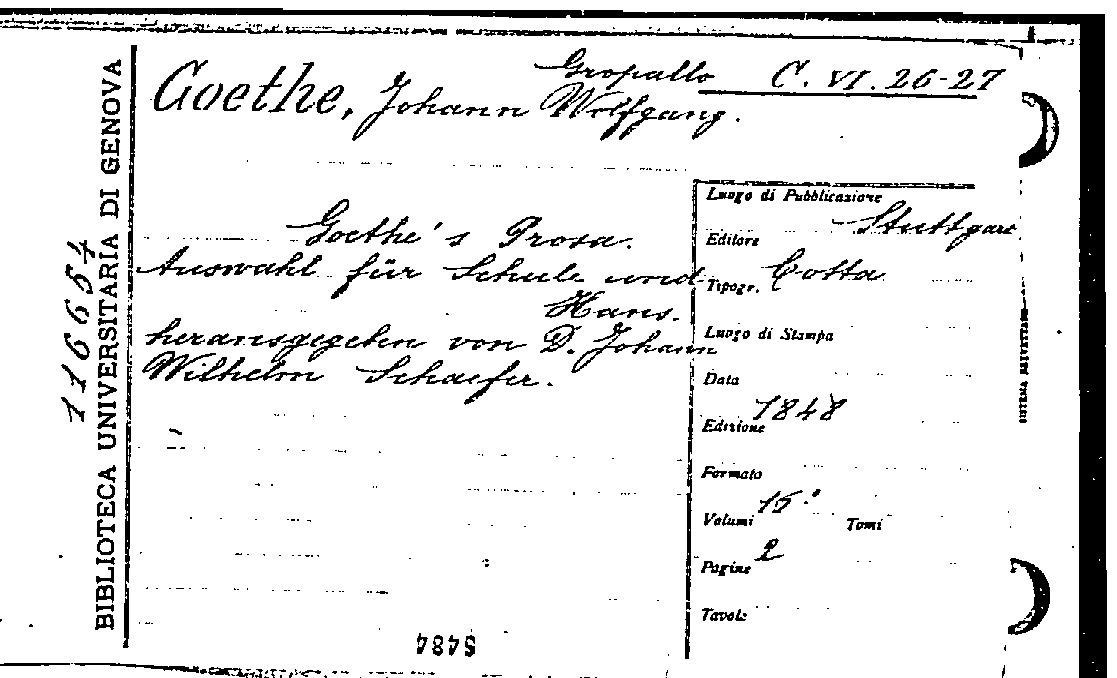 Gropallo C. VI. 26-27
Goethe, Johann Wolfgang.
Goethe's Prosa.
Auswahl für Schule und
Haus.
herausgegeben von D. Johann
Wilhelm Schaefer.
Luogo di Pubblicazione
Stuttgart
Editore
Cotta
Tipogr.
Luogo di Stampa
Data
1848
Edizione
Formato
15°
Volumi Tomi
2
Pagine
Tavole
116654
BIBLIOTECA UNIVERSITARIA DI GENOVA
5484